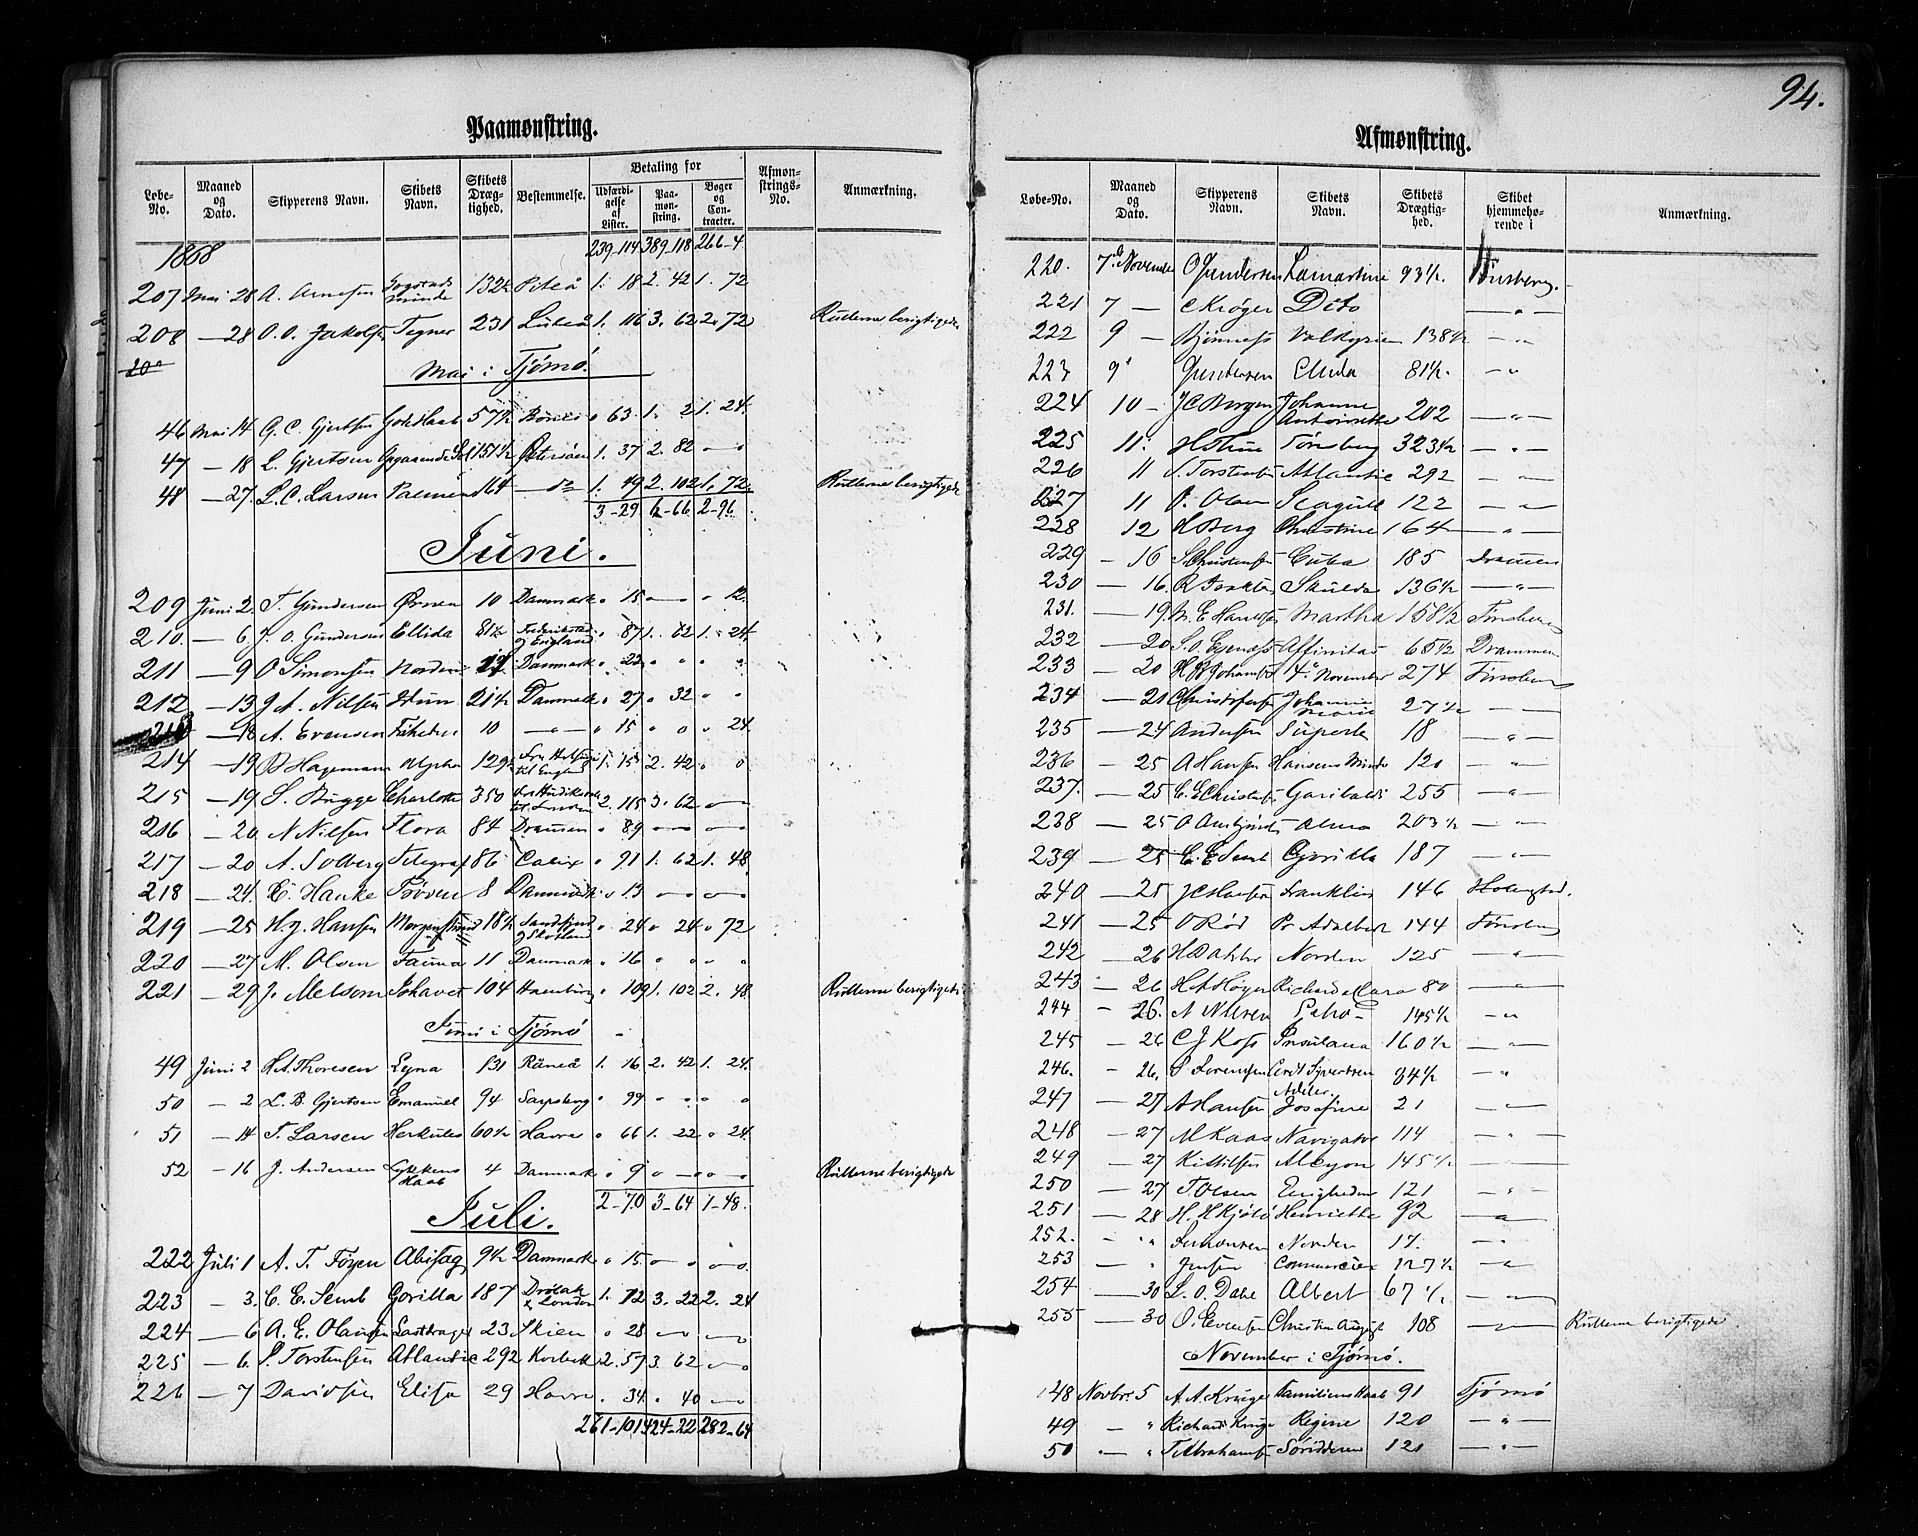 94.
Paamønstring.
Løbe-No. Maaned og Dato. Skipperens Navn. Skibets Navn. Skibets Dræg-tighed. Bestemmelse. Betaling for Udfærdi-gelse af Lister. Paa-mønstring. Bøger og Con-tracter. Afmøn-strings-No. Anmærkning.
1868 239-114 389-118 266-4
207 Mai 28 A. Arnesen minde 132½ Piteå 1. 18 2. 42 1. 72
208 — 28 O. O. Jakobsen Tegner 231 Luleå 1. 116 3. 62 2. 72 Rullerne berigtigede
Mai i Tjømø.
46 Mai 14 G. C. Gjertsen Godt Haab 57½ 63 1. 2 1. 24.
47 — 18 L. Gjertsen 151½ 1. 37 2. 82 — o
48 — 27. L. C. Larsen 164 — do 1. 49 2. 102 1. 72. Rullerne berigtigede
3-29 6-66 2-96
Juni.
209 Juni 2. T. Gundersen Ørnen 10 Danmark " 15 — " 12.
210. — 6. J. O. Gundersen Ellida 81½ Frederikstad og England " 87 1. 62 1. 24.
211 — 9 O Simonsen Norden 17 Danmark " 23 " " " "
212 — 13 J A. Nilsen 21½ Danmark " 27 " 32 " "
213 — 18 A. Evensen 10 — " — " 15 " " " 24.
214 — 19 B Hagemann Alpha 129½ til England 1. 15 2. 42 " "
215 — 19. S. Bugge Charlotte 350 2. 115 3. 62 " —
216 — 20 N Nilsen Flora 84 Drammen " 89 — —
217 — 20 A. Solberg Telegraf 86 Calix " 91 1. 62 1. 48
218 — 24. C. Hanke 8 Danmark " 13 — —
219 — 25 H. J. Hansen 18½ Sandefjord og Skotland " 24 " 24 " 72
220 — 27 M. Olsen Fauna 11 Danmark " 16 " " " "
221 — 29 J. Melsom Johanes 104 Hamburg " 109 1. 102 2. 48 Rullerne berigtigede
Juni i Tjømø
49 Juni 2 H. A. Thoresen Leyna 131 Råneå 1. 16 2. 42 1. 24.
50 — 2 L. B. Gjertsen Emanuel 94 Sarpsborg " 99 " " " "
51 — 14 T. Larsen Herkules 60½ Havre " 66 1. 22 " 24.
52 — 16 J. Andersen Lykkens Haab 4 Danmark " 9 " — " — Rullerne berigtigede
2-70 3-64 1-48.
Juli.
222 Juli 1 A. T. Føyen Abisag 9½ Danmark " 15 " — " —
223 — 3. C. E. Semb Gorilla 187 Drøbak & London 1. 72 3. 22 2. 24
224 — 6 A. E. Olausen Lastdrager 23 Skien " 28 — —
225 — 6. S. Torstensen Atlantic 292 2. 57 3. 62 — "
226 — 7 Davidsen Elise 29 Havre . 34 . 40 — "
261-101 424-22 282-64
Afmønstring.
Løbe-No. Maaned og Dato. Skipperens Navn. Skibets Navn. Skibets Drægtig-hed. Skibet hjemmehø-rende i Anmærkning.
220. 7de November O Gundersen Lamartine 93½. Tønsberg.
221 7 — C Krøger Dito — " —
222 9 — Bjønness Valkyrien 138½ — " —
223 9 Gundersen Ellida 81½. — "
224 10 — J C Borgen Johanne Antoinette 202 — " —
225 11. H Stine Tønsberg 323½ — " —
226 11 S. Torstensen Atlantic 292 — " —
227 11 O. Olsen Seagull 122 — " —
228 12 H Berg Christine 164 — " —
229 — 16 S Christensen Cuba 185 Drammen
230 — 16. Skulda 136½ — " —
231. — 19. M. E Hansen Martha 158½ Tønsberg
232 — 20 S. O. Affinitas 60½ Drammen
233 — 20 H B Johansen 4de November 274 Tønsberg
234 — 21 Christofersen Johanne Marie 27½ — " —
235 — 24 Andersen Superb 18 — " —
236 — 25 A Hansen Hansens Minde 120 — " —
237. — 25 C. E Christensen Garibaldi 255 — " —
238 — 25 Alma 203½ — " —
239 — 25 C. E Semb Gorilla 187 — " —
240 — 25 J C Hansen Franklin 146 Holmestrand.
241 — 25 O Rød Pr Adalbert 144 Tønsberg
242 — 26 H Bakke Norden 125 — " —
243 — 26 H A Høyer 80 — " —
244 — 26. A Nilsen Echo 145½ — " —
245 — 26 C J Koss Insulana 160½ — " —
246. — 26. S Sørensen Cort Syvertsen Adeler 34½ — "
247 — 27 A Hansen Josefine 21 — " —
248 — 27 M Kaas Navigatør 114 — " —
249 — 27 Kittilsen Alcyon 145½ — " —
250 — 27 T. Olsen Enigheden 121 — " —
251 — 28 H. H Kjølø Henriette 92 — " —
252. — " " Norden 17. — " —
253 — " Jensen Commercien 127½ — " —
254 — 30 L. O. Dahl Albert 67½ — " —
255 — 30 O. Evensen Christian August 108 — " — Rullerne berigtigede.
November i Tjømø.
48 Novbr. 5 A. A. Kruge Familiens Haab 91 Tjømø
49 — " Richard Kruge Regine 120 — " —
50 — " T Abrahamsen Søridderen 121 — " —